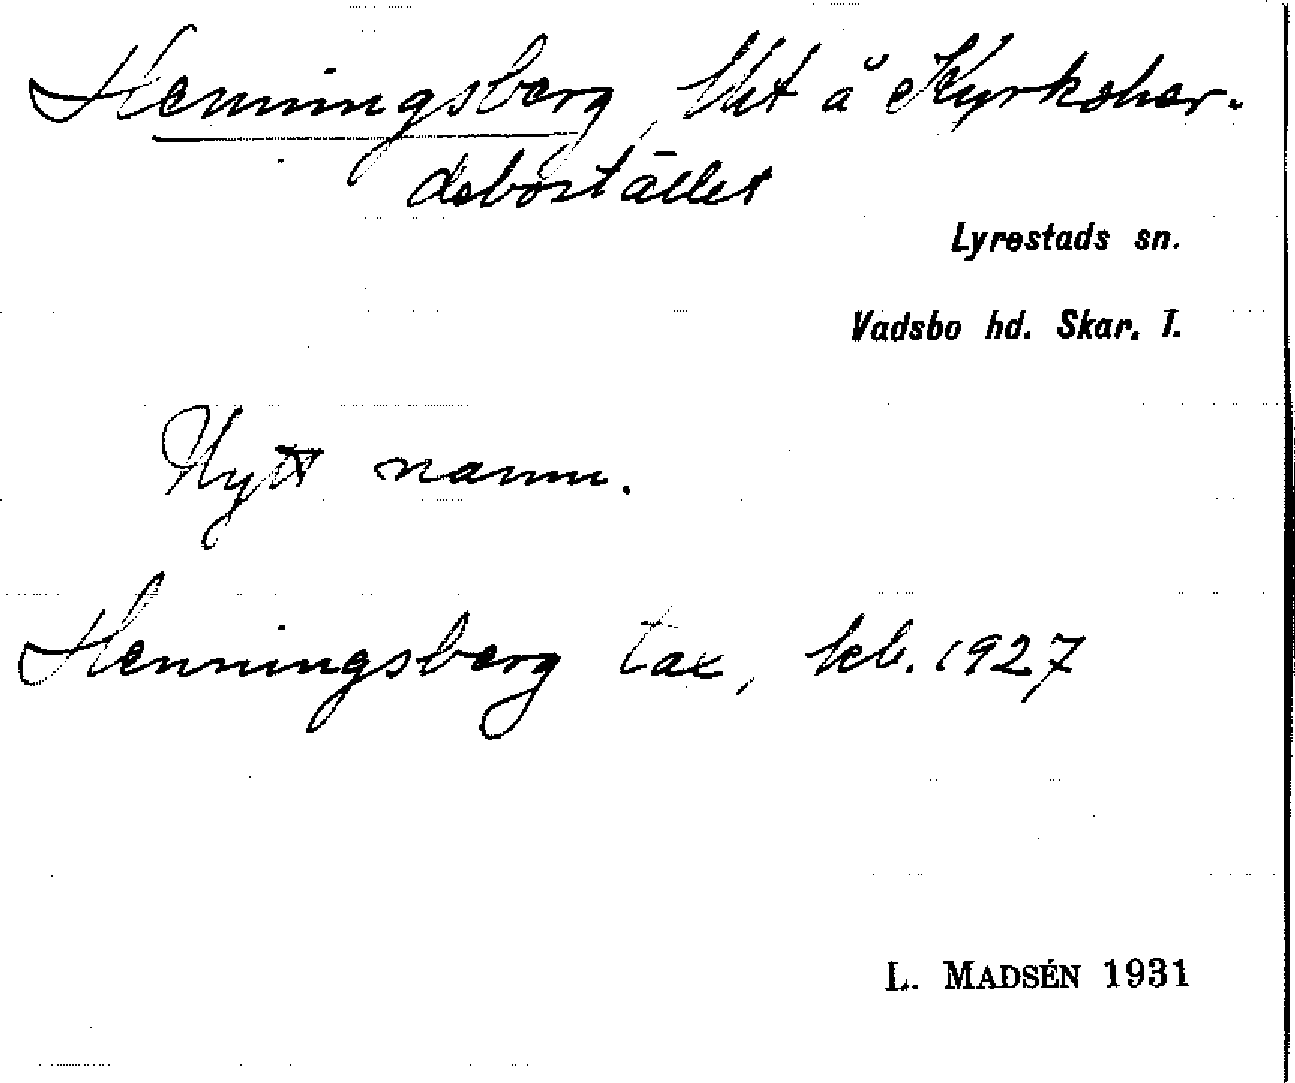 Henningsberg, lht å Kyrkoher-
debostället
Lyrestads sn.
Vadsbo hd. Skar. l.
Nytt namn.
Henningsberg tax, kb. 1927
L. MADSÉN 1931